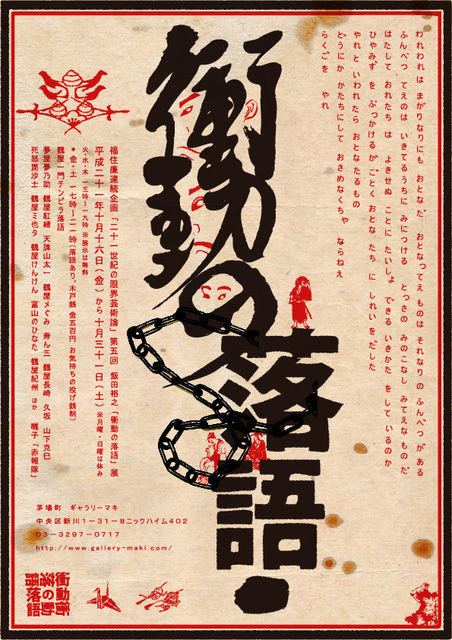 われわれは まがりなりにも おとなだ。 おとなってえ ものは それなりの ふんべつが ある
ふんべつ てえのは いきてるうちに みにつける とっさの みのこなし みてえな ものだ。
はたして おれたちは よきせぬ ことに たいしよ できる いきかた を しているのか
ひやみずを ぶっかけるが ごとく おとなたちに しれいを だした
やれと いわれたら おとなたるもの
どうにか かたちにして おさめなくちゃ ならねえ
らくごを やれ
衝動の落語・
福住廉連続企画「二十一世紀の限界芸術論」第五回 飯田裕之「衝動の落語」展
平成二十一年十月十六日(金)から十月三十一日(土)※月曜・日曜は休み
火・水・木 一三時~一九時 ※展示は無料
*金・土 一七時~二一時(落語あり。木戸銭 金五百円 お気持ちの投げ銭制)
鶴屋一門チンピラ落語
夢屋夢乃助 鶴屋紅緒 天誅山太一 鶴屋メぐみ 寿ん三 鶴屋長崎 久坂 山下克巳
死怒毘沙土 鶴屋ミ也タ 鶴屋けんけん 富山のひなた 鶴屋紀州 ほか 囃子「赤報隊」
茅場町 ギャラリーマキ
中央区新川1-31-8ニックハイム402
03-3297-0717
http://www.gallery-maki.com/
衝動の落語